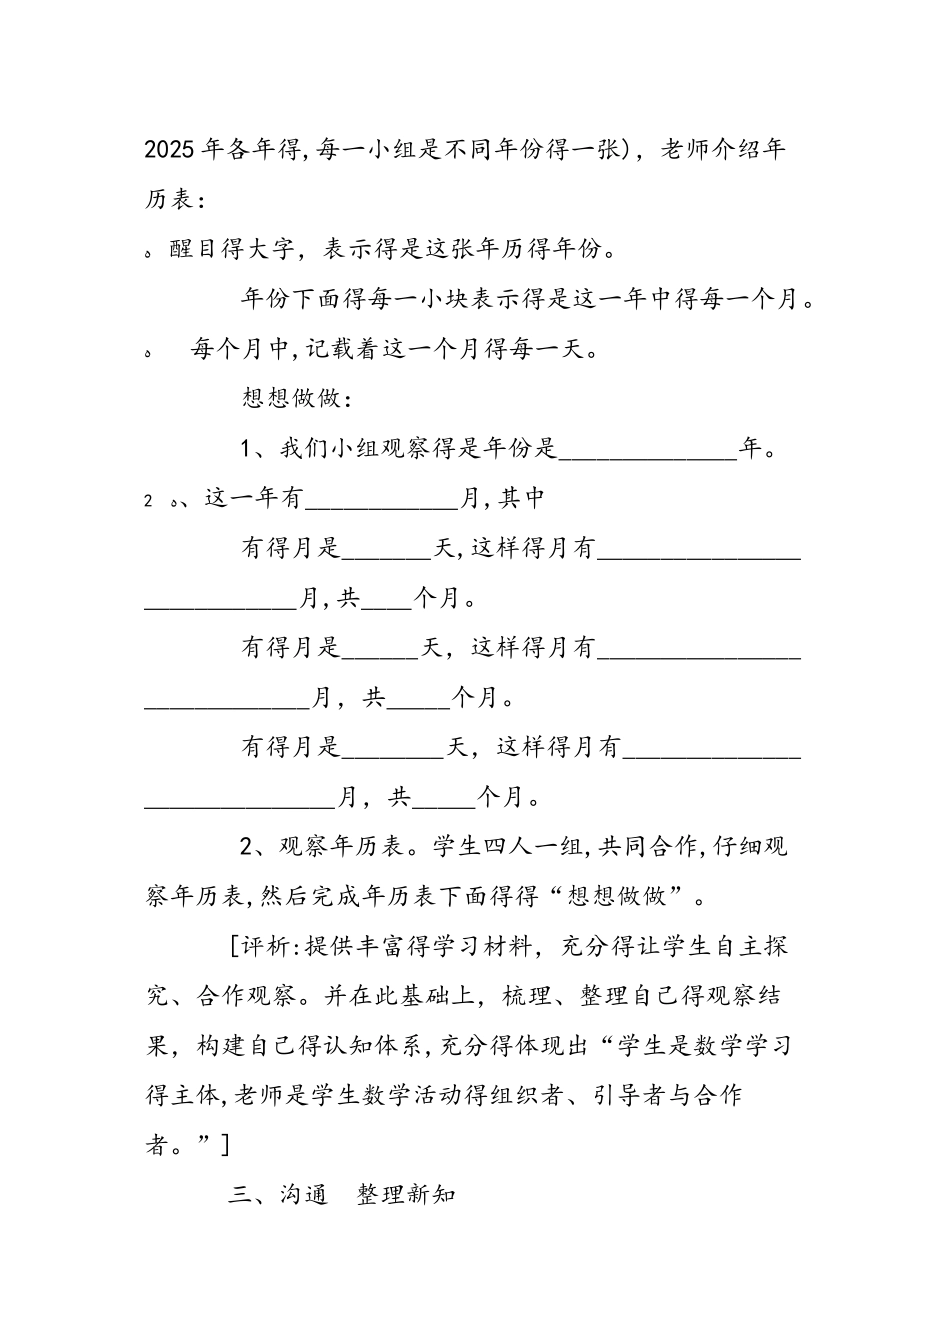 2025年各年得,每一小组是不同年份得一张)，老师介绍年
历表：
。醒目得大字，表示得是这张年历得年份。
年份下面得每一小块表示得是这一年中得每一个月。
。 每个月中,记载着这一个月得每一天。
想想做做：
1、我们小组观察得是年份是______________年。
2 。、这一年有____________月,其中
有得月是_______天,这样得月有________________
____________月,共____个月。
有得月是______天，这样得月有________________
_____________月，共_____个月。
有得月是________天，这样得月有______________
_______________月，共_____个月。
2、观察年历表。学生四人一组,共同合作,仔细观
察年历表,然后完成年历表下面得得“想想做做”。
[评析:提供丰富得学习材料，充分得让学生自主探
究、合作观察。并在此基础上，梳理、整理自己得观察结
果，构建自己得认知体系,充分得体现出“学生是数学学习
得主体,老师是学生数学活动得组织者、引导者与合作
者。”]
三、沟通 整理新知